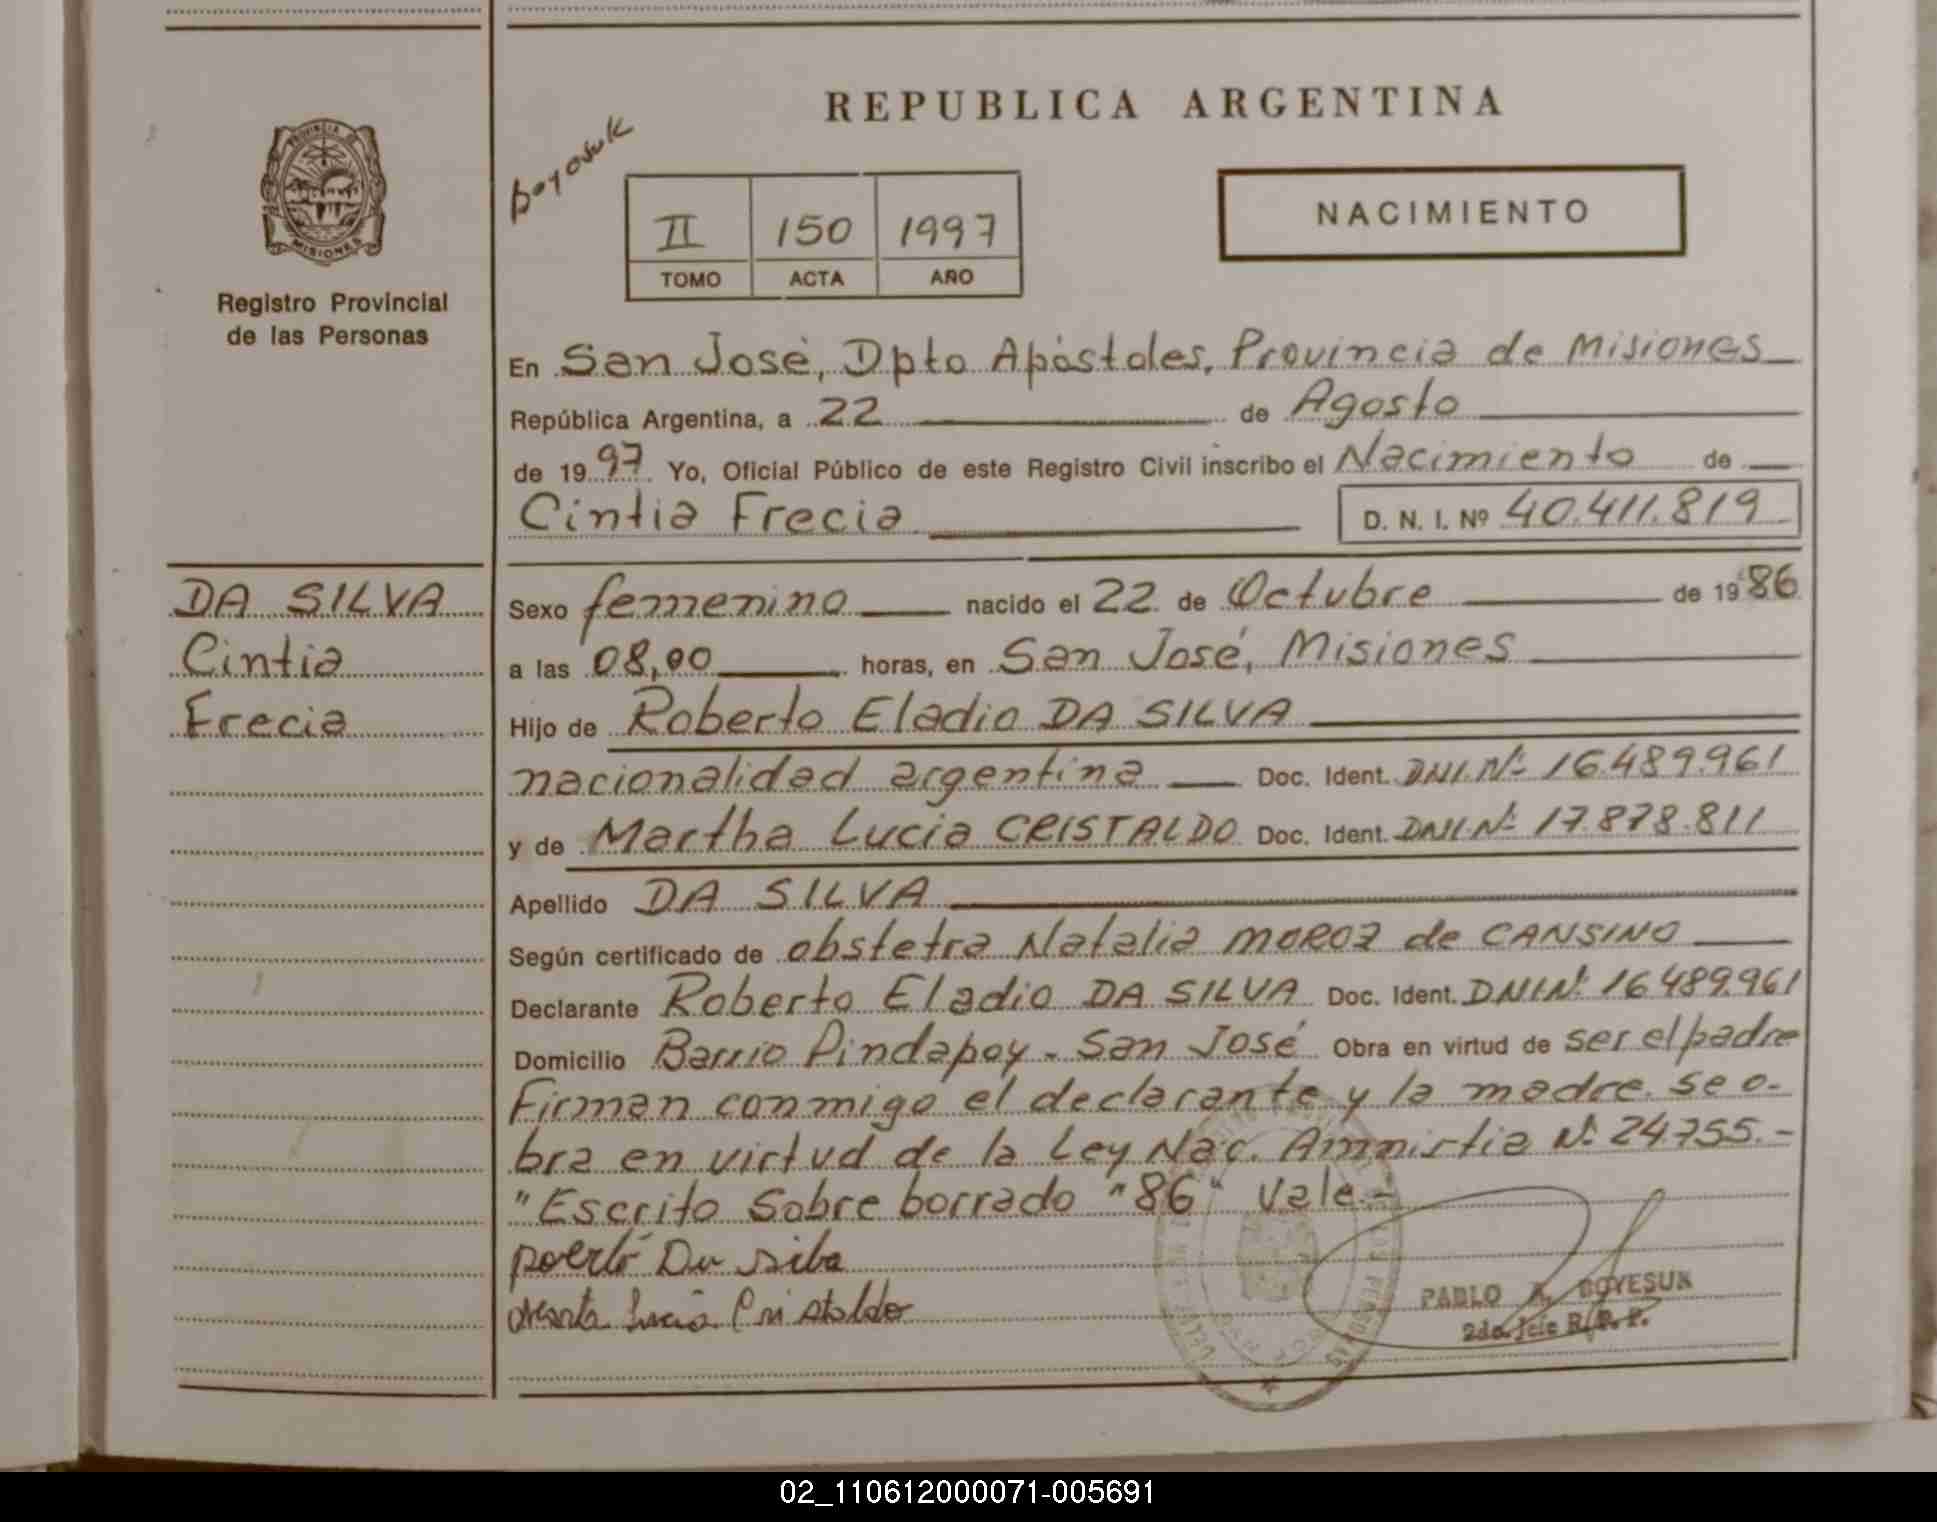 REPUBLICA ARGENTINA
PROVINCIA DE
MISIONES
Registro Provincial
de las Personas
boyosuk
II 150 1997
TOMO ACTA AÑO
NACIMIENTO
En San José, Dpto Apóstoles, Provincia de Misiones
República Argentina, a 22 de Agosto
de 1997 Yo, Oficial Público de este Registro Civil inscribo el Nacimiento de
Cintia Frecia D. N. I. Nº 40.411.819
DA SILVA
Cintia
Frecia
Sexo femenino nacido el 22 de Octubre de 1986
a las 08,00 horas, en San José, Misiones
Hijo de Roberto Eladio DA SILVA
nacionalidad argentina Doc. Ident. DNI.Nº 16.489.961
y de Martha Lucia CRISTALDO Doc. Ident. DNI.Nº 17.878.811
Apellido DA SILVA
Según certificado de obstetra Natalia MOROZ de CANSINO
Declarante Roberto Eladio DA SILVA Doc. Ident. DNI.Nº 16.489.961
Domicilio Barrio Pindapoy - San José Obra en virtud de ser el padre
Firman conmigo el declarante y la madre. Se o-
bra en virtud de la Ley Nac. Amnistia Nº 24.755.-
"Escrito Sobre borrado "86" Vale.-
Da silba
Marta Lucia Cristaldo
PABLO A. BOYESUK
2do. Jefe R. P. P.
02_110612000071-005691